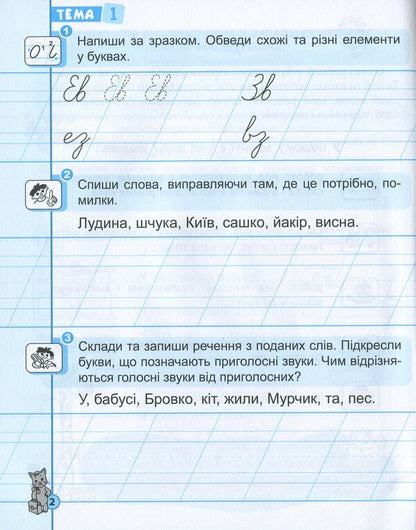 ТЕМА 1
1
Напиши за зразком. Обведи схожі та різні елементи
у буквах.
Ев Ев Ев Зв
ез вз
2
Спиши слова, виправляючи там, де це потрібно, по-
милки.
Лудина, шчука, Київ, сашко, йакір, висна.
3
Склади та запиши речення з поданих слів. Підкресли
букви, що позначають приголосні звуки. Чим відрізня-
ються голосні звуки від приголосних?
У, бабусі, Бровко, кіт, жили, Мурчик, та, пес.
2